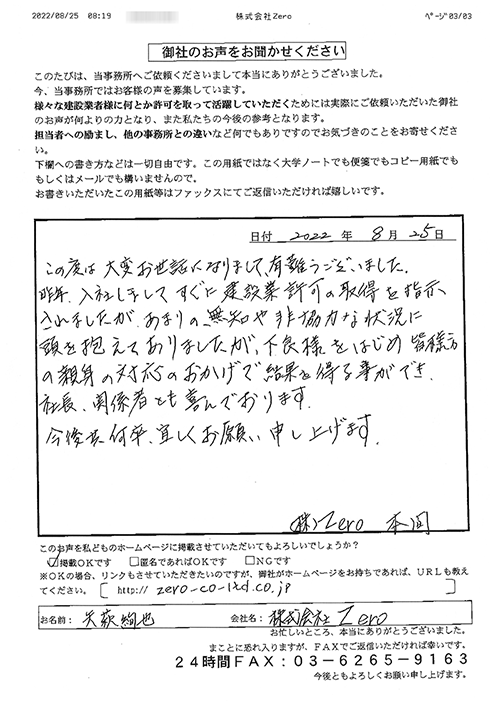 2022/08/25 08:19 株式会社Zero ﾍﾟｰｼﾞ 03/03
御社のお声をお聞かせください
このたびは、当事務所へご依頼くださいまして本当にありがとうございました。
今、当事務所ではお客様の声を募集しています。
様々な建設業者様に何とか許可を取って活躍していただくためには実際にご依頼いただいた御社
のお声が何よりの力となり、また私たちの今後の参考となります。
担当者への励まし、他の事務所との違いなど何でもありですのでお気づきのことをお寄せくださ
い。
下欄への書き方などは一切自由です。この用紙ではなく大学ノートでも便箋でもコピー用紙でも
もしくはメールでも構いませんので。
お書きいただいたこの用紙等はファックスにてご返信いただければ嬉しいです。
日付 2022 年 8 月 25 日
この度は大変お世話になりまして、有難うございました。
昨年、入社しましてすぐに建設業許可の取得を指示
されましたが、あまりの無知や非協力な状況に
頭を抱えておりましたが、下良様をはじめ皆様方
の親身の対応のおかげで結果を得る事ができ、
社長、関係者とも喜んでおります。
今後共何卒、宜しくお願い申し上げます。
(株)Zero 本間
このお声を私どものホームページに掲載させていただいてもよろしいでしょうか？
☑掲載OKです □匿名であればOKです □NGです
※OKの場合、リンクもさせていただきたいのですが、御社がホームページをお持ちであれば、URLも教え
てください。〔 http:// zero-co-ltd.co.jp 〕
お名前： 矢萩絢也 会社名： 株式会社Zero
お忙しいところ、本当にありがとうございました。
まことに恐れ入りますが、FAXでご返信いただければ幸いです。
24時間FAX：03-6265-9163
今後ともよろしくお願い申し上げます。